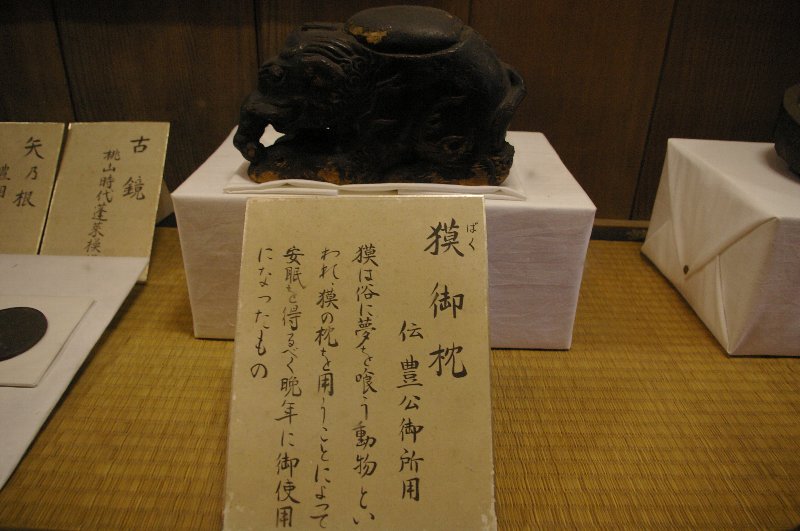 獏御枕
ばく
伝 豊公御所用
獏は俗に夢を喰う動物とい
われ、獏の枕を用うことによって
安眠を得るべく晩年に御使用
になったもの
古鏡
桃山時代蓬莱模
矢乃根